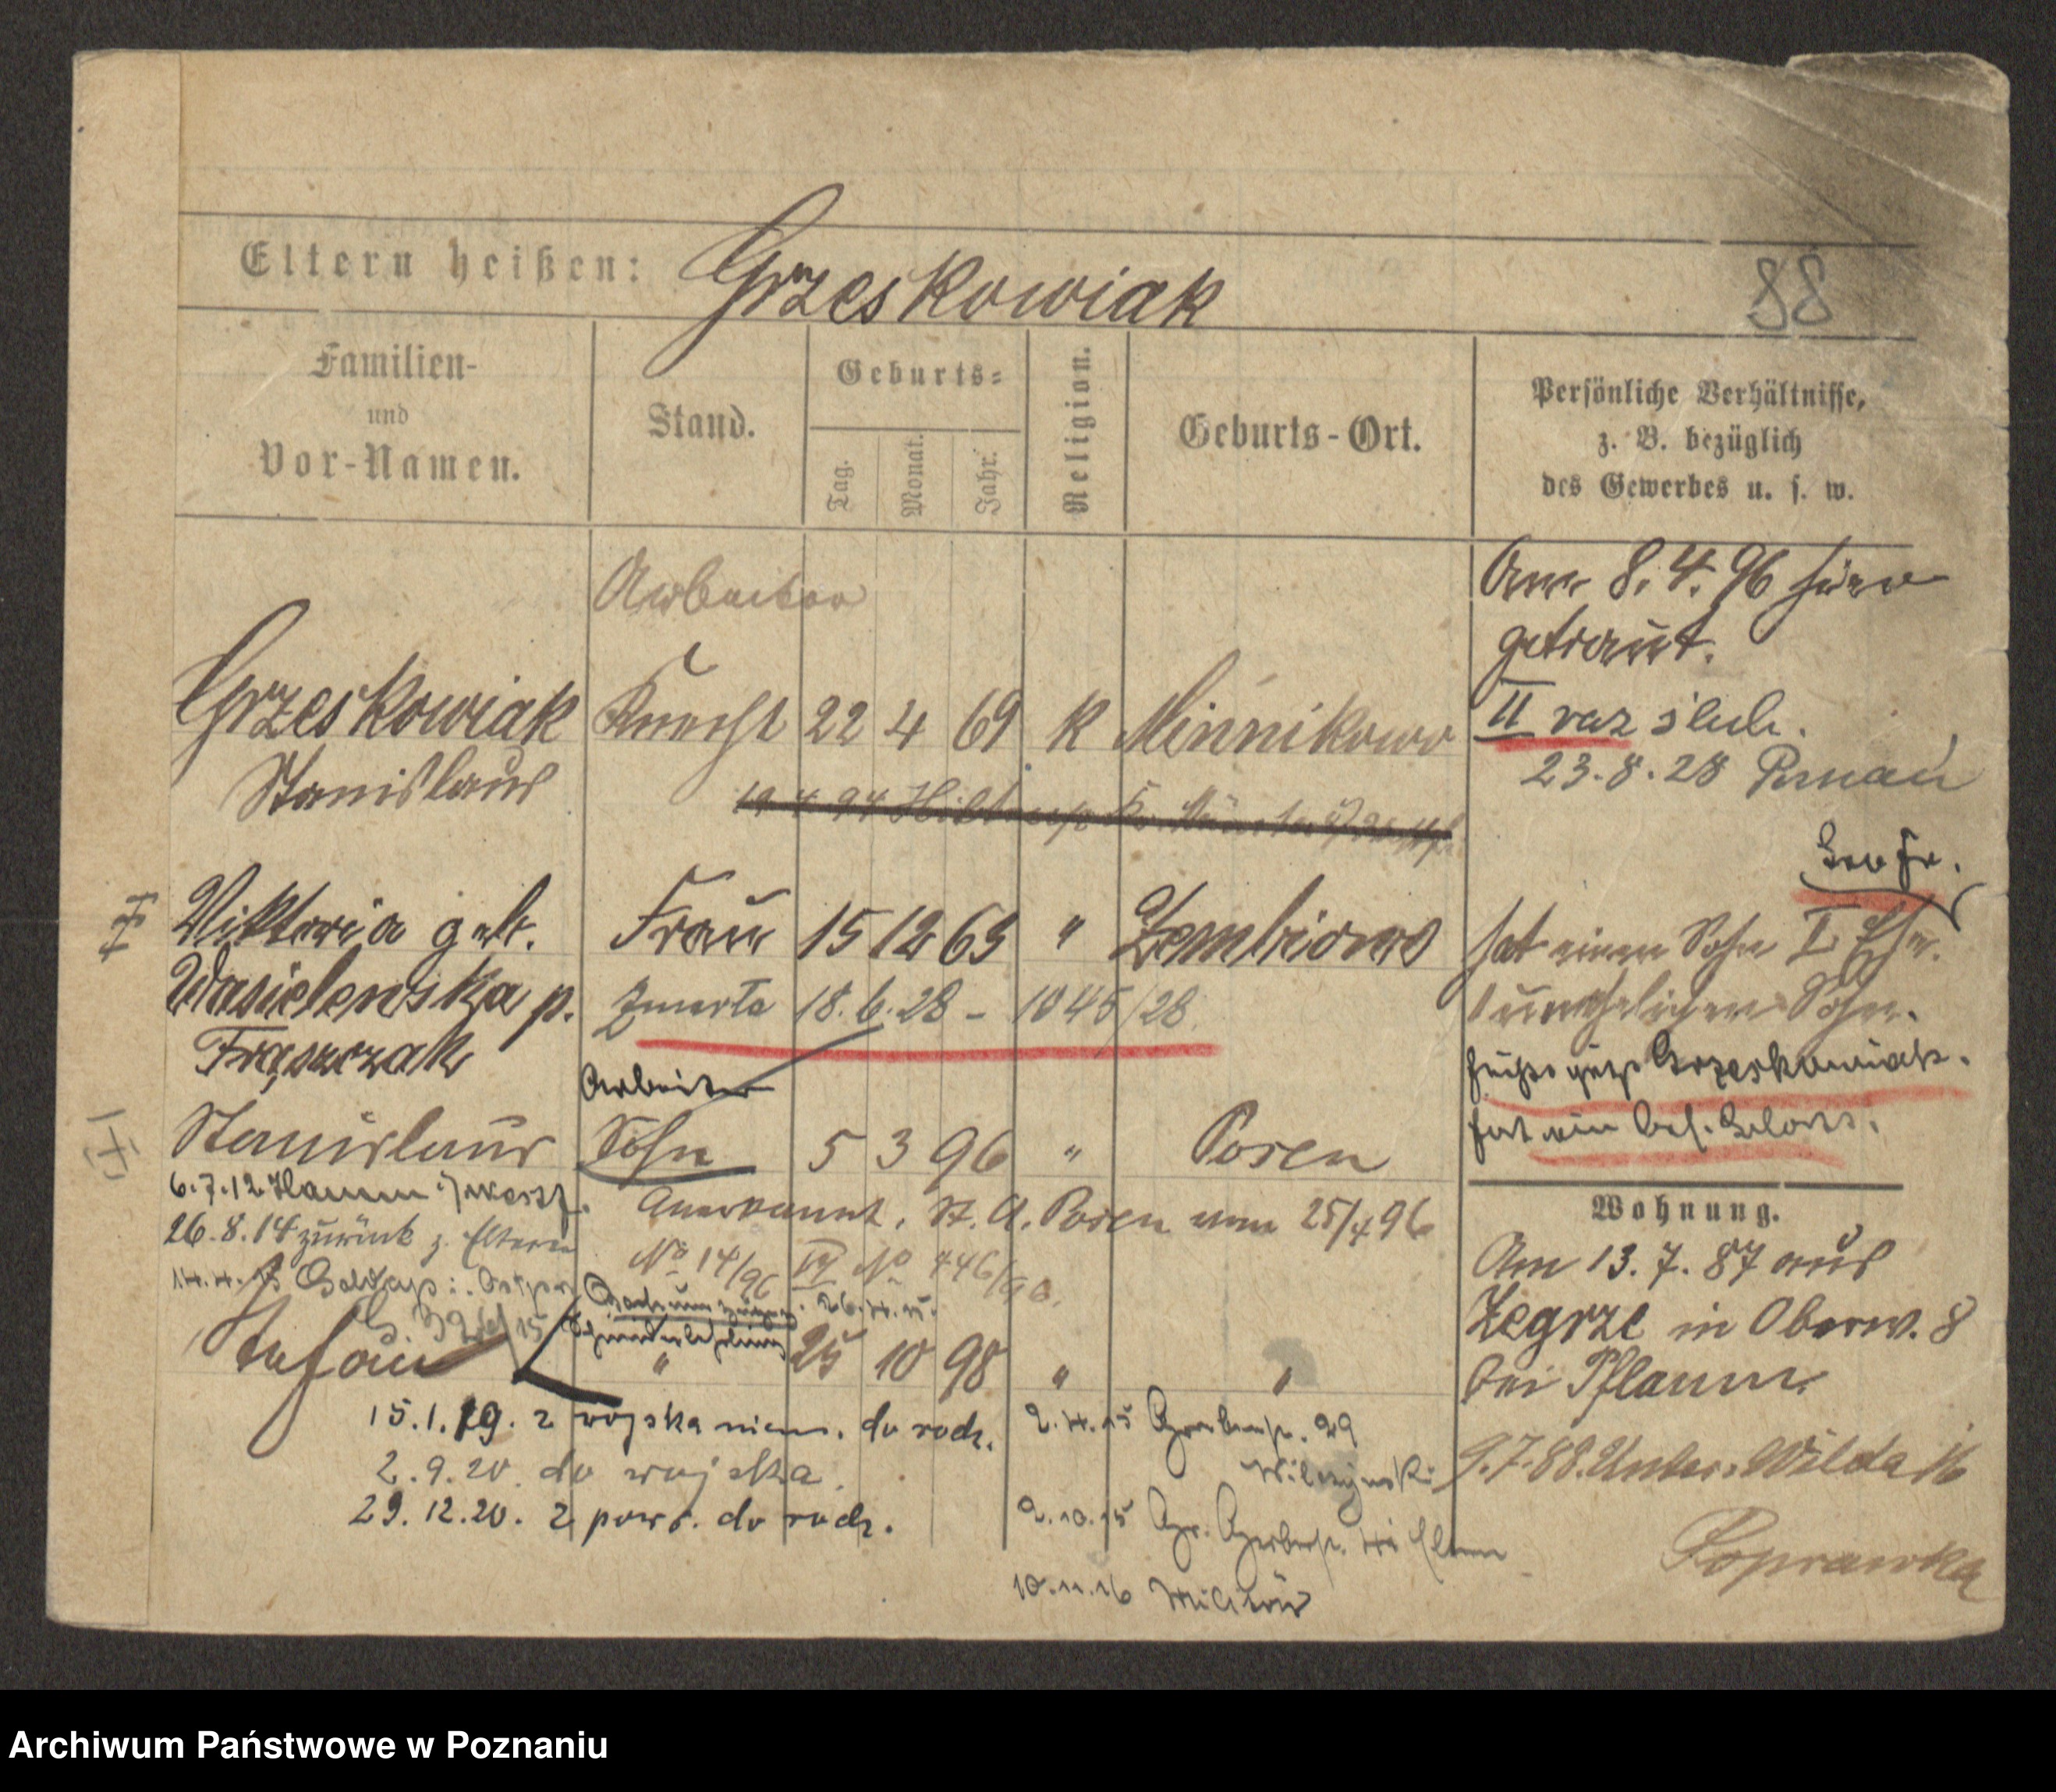 Eltern heißen: Grzeskowiak
88
Familien-
und
Vor-Namen.
Stand.
Geburts-
Tag.
Monat.
Jahr.
Religion.
Geburts-Ort.
Persönliche Verhältnisse,
z. B. bezüglich
des Gewerbes u. s. w.
Arbeiter
Am 8.4.96 hier
getraut.
Grzeskowiak Knecht 22 4 69 K Minnikowo
Stanislaus
II raz ślub.
23.8.28 Poznań
Viktoria geb. Frau 15 12 63 " Zembowo
Wasielewska p. zmarła 18.6.28 - 1045/28
Frąszczak
hat einen Sohn I Ehe.
1 unehelichen Sohn.
heißt jetzt Grzeskowiak.
hat ein bes.
Arbeiter
Stanislaus Sohn 5 3 96 " Posen
6.7.12 Hamm i/Westf.
Anerkannt, St. A. Posen vom 25/4 96
26.8.14 zurück z. Eltern
No 14/96 IV No 446/96.
14.4.15 Goldap i. Ostpr.
G. 326/15
26.4.15.
Schneiderlehrling
Stefan " 25 10 98 " "
15.1.19. z wojska niem. do rodz.
2.9.20. do wojska.
29.12.20. z pow. do rodz.
2.4.15 29
Wilczynski
2.10.15 Gr. Gerberstr. Eltern
10.11.16 Militär
Wohnung.
Am 13.7.87 aus
Zegrze in Oberw. 8
bei Pflaum.
9.7.88. Unter. Wilda 16
Poprawka
Archiwum Państwowe w Poznaniu